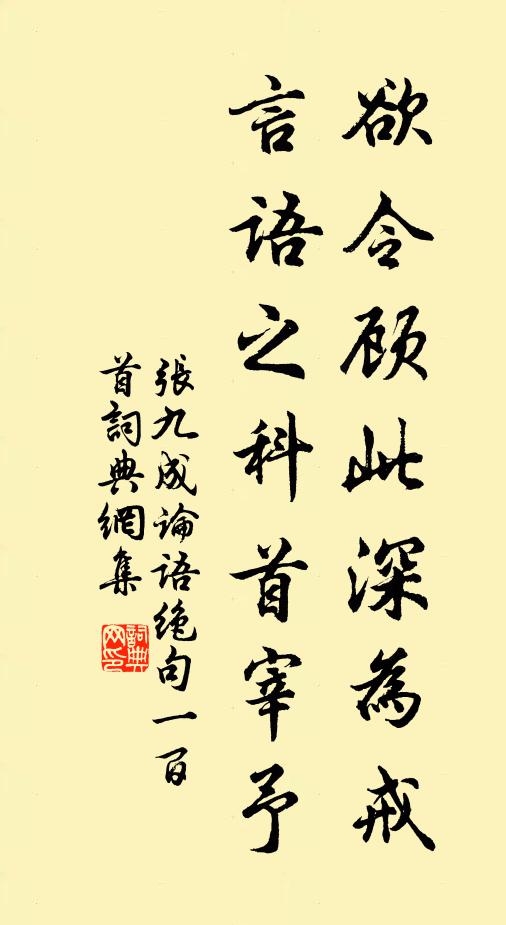 欲令顾此深為戒
言語之科首宰予
張九成論语絶句一百
首詞典網集
詞典网印